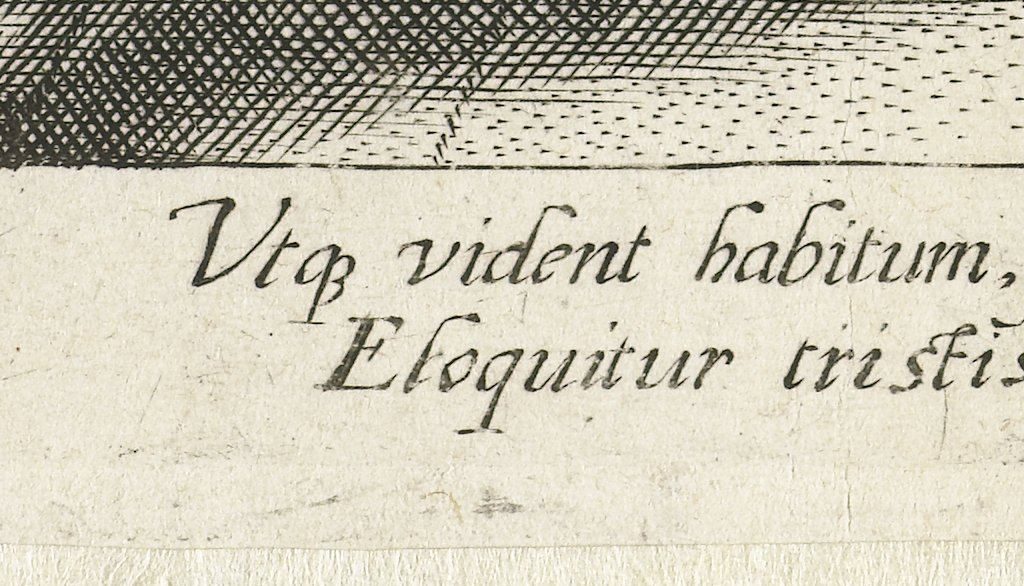 Vtqꝫ vident habitum,
Eloquitur tristis